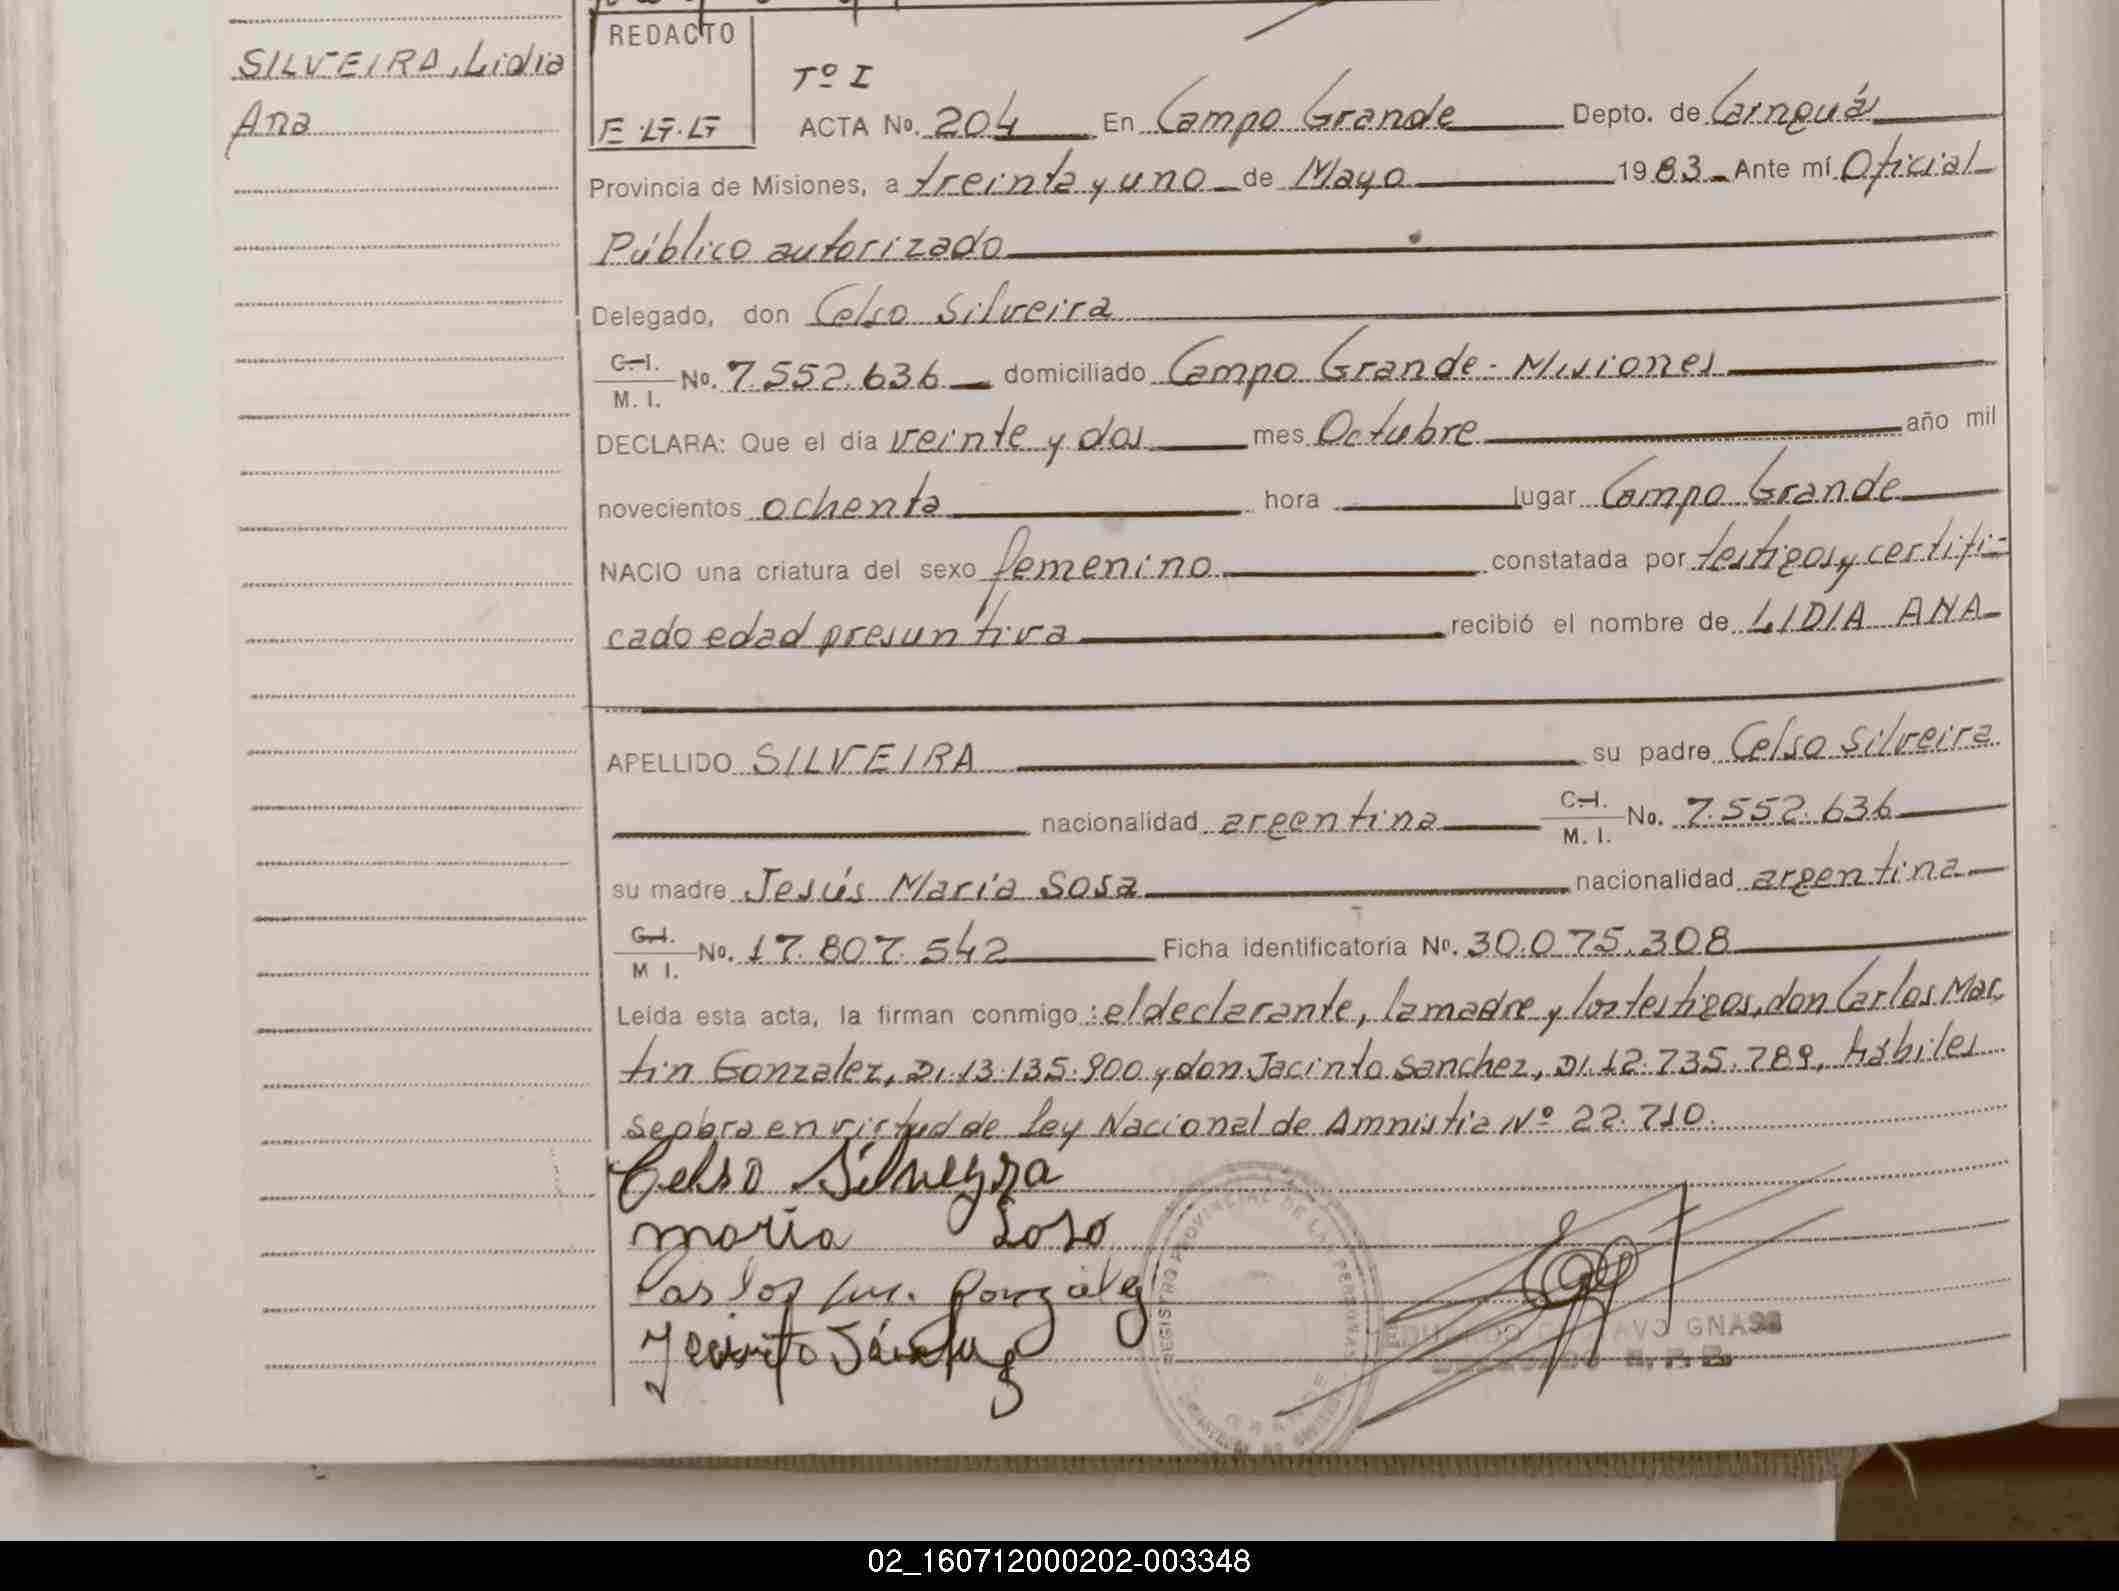 SILVEIRA, Lidia
Ana
REDACTO
E.G.G
Tº I
ACTA No. 204 En Campo Grande Depto. de Cainguás
Provincia de Misiones, a treinta y uno de Mayo 1983 Ante mí Oficial
Público autorizado
Delegado, don Celso Silveira
C.I. M. I. No. 7.552.636 domiciliado Campo Grande - Misiones
DECLARA: Que el día veinte y dos mes Octubre año mil
novecientos ochenta hora lugar Campo Grande
NACIO una criatura del sexo femenino constatada por testigos y certifi-
cado edad presuntiva recibió el nombre de LIDIA ANA
APELLIDO SILVEIRA su padre Celso Silveira
nacionalidad argentina C.I. M. I. No. 7.552.636
su madre Jesús María Sosa nacionalidad argentina
C.I. M I. No. 17.807.542 Ficha identificatoria No. 30.075.308
Leída esta acta, la firman conmigo: el declarante, la madre y los testigos, don Carlos Mar
tin Gonzalez, DI. 13.135.900 y don Jacinto Sanchez, DI. 12.735.789, hábiles
se obra en virtud de Ley Nacional de Amnistia Nº 22.710.
Celso Silveyra
maria Soso
Carlos M. González
Jacinto Sánchez
REGISTRO PROVINCIAL DE LAS PERSONAS
GNASS
DELEGADO R. P. P.
02_160712000202-003348